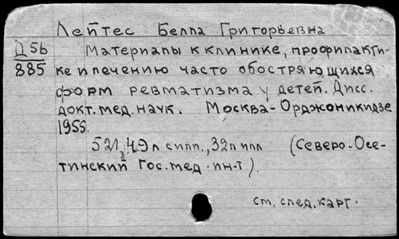 Лейтес Белла Григорьевна
Д 56
885
Материалы к клинике, профилакти-
ке и лечению часто обостряющихся
форм ревматизма у детей. Дисс.
докт. мед. наук. Москва - Орджоникидзе
1955.
521, 49 л с илл., 32 л илл (Северо-Осе-
2
тинский Гос. мед. ин-т).
см. след. карт.